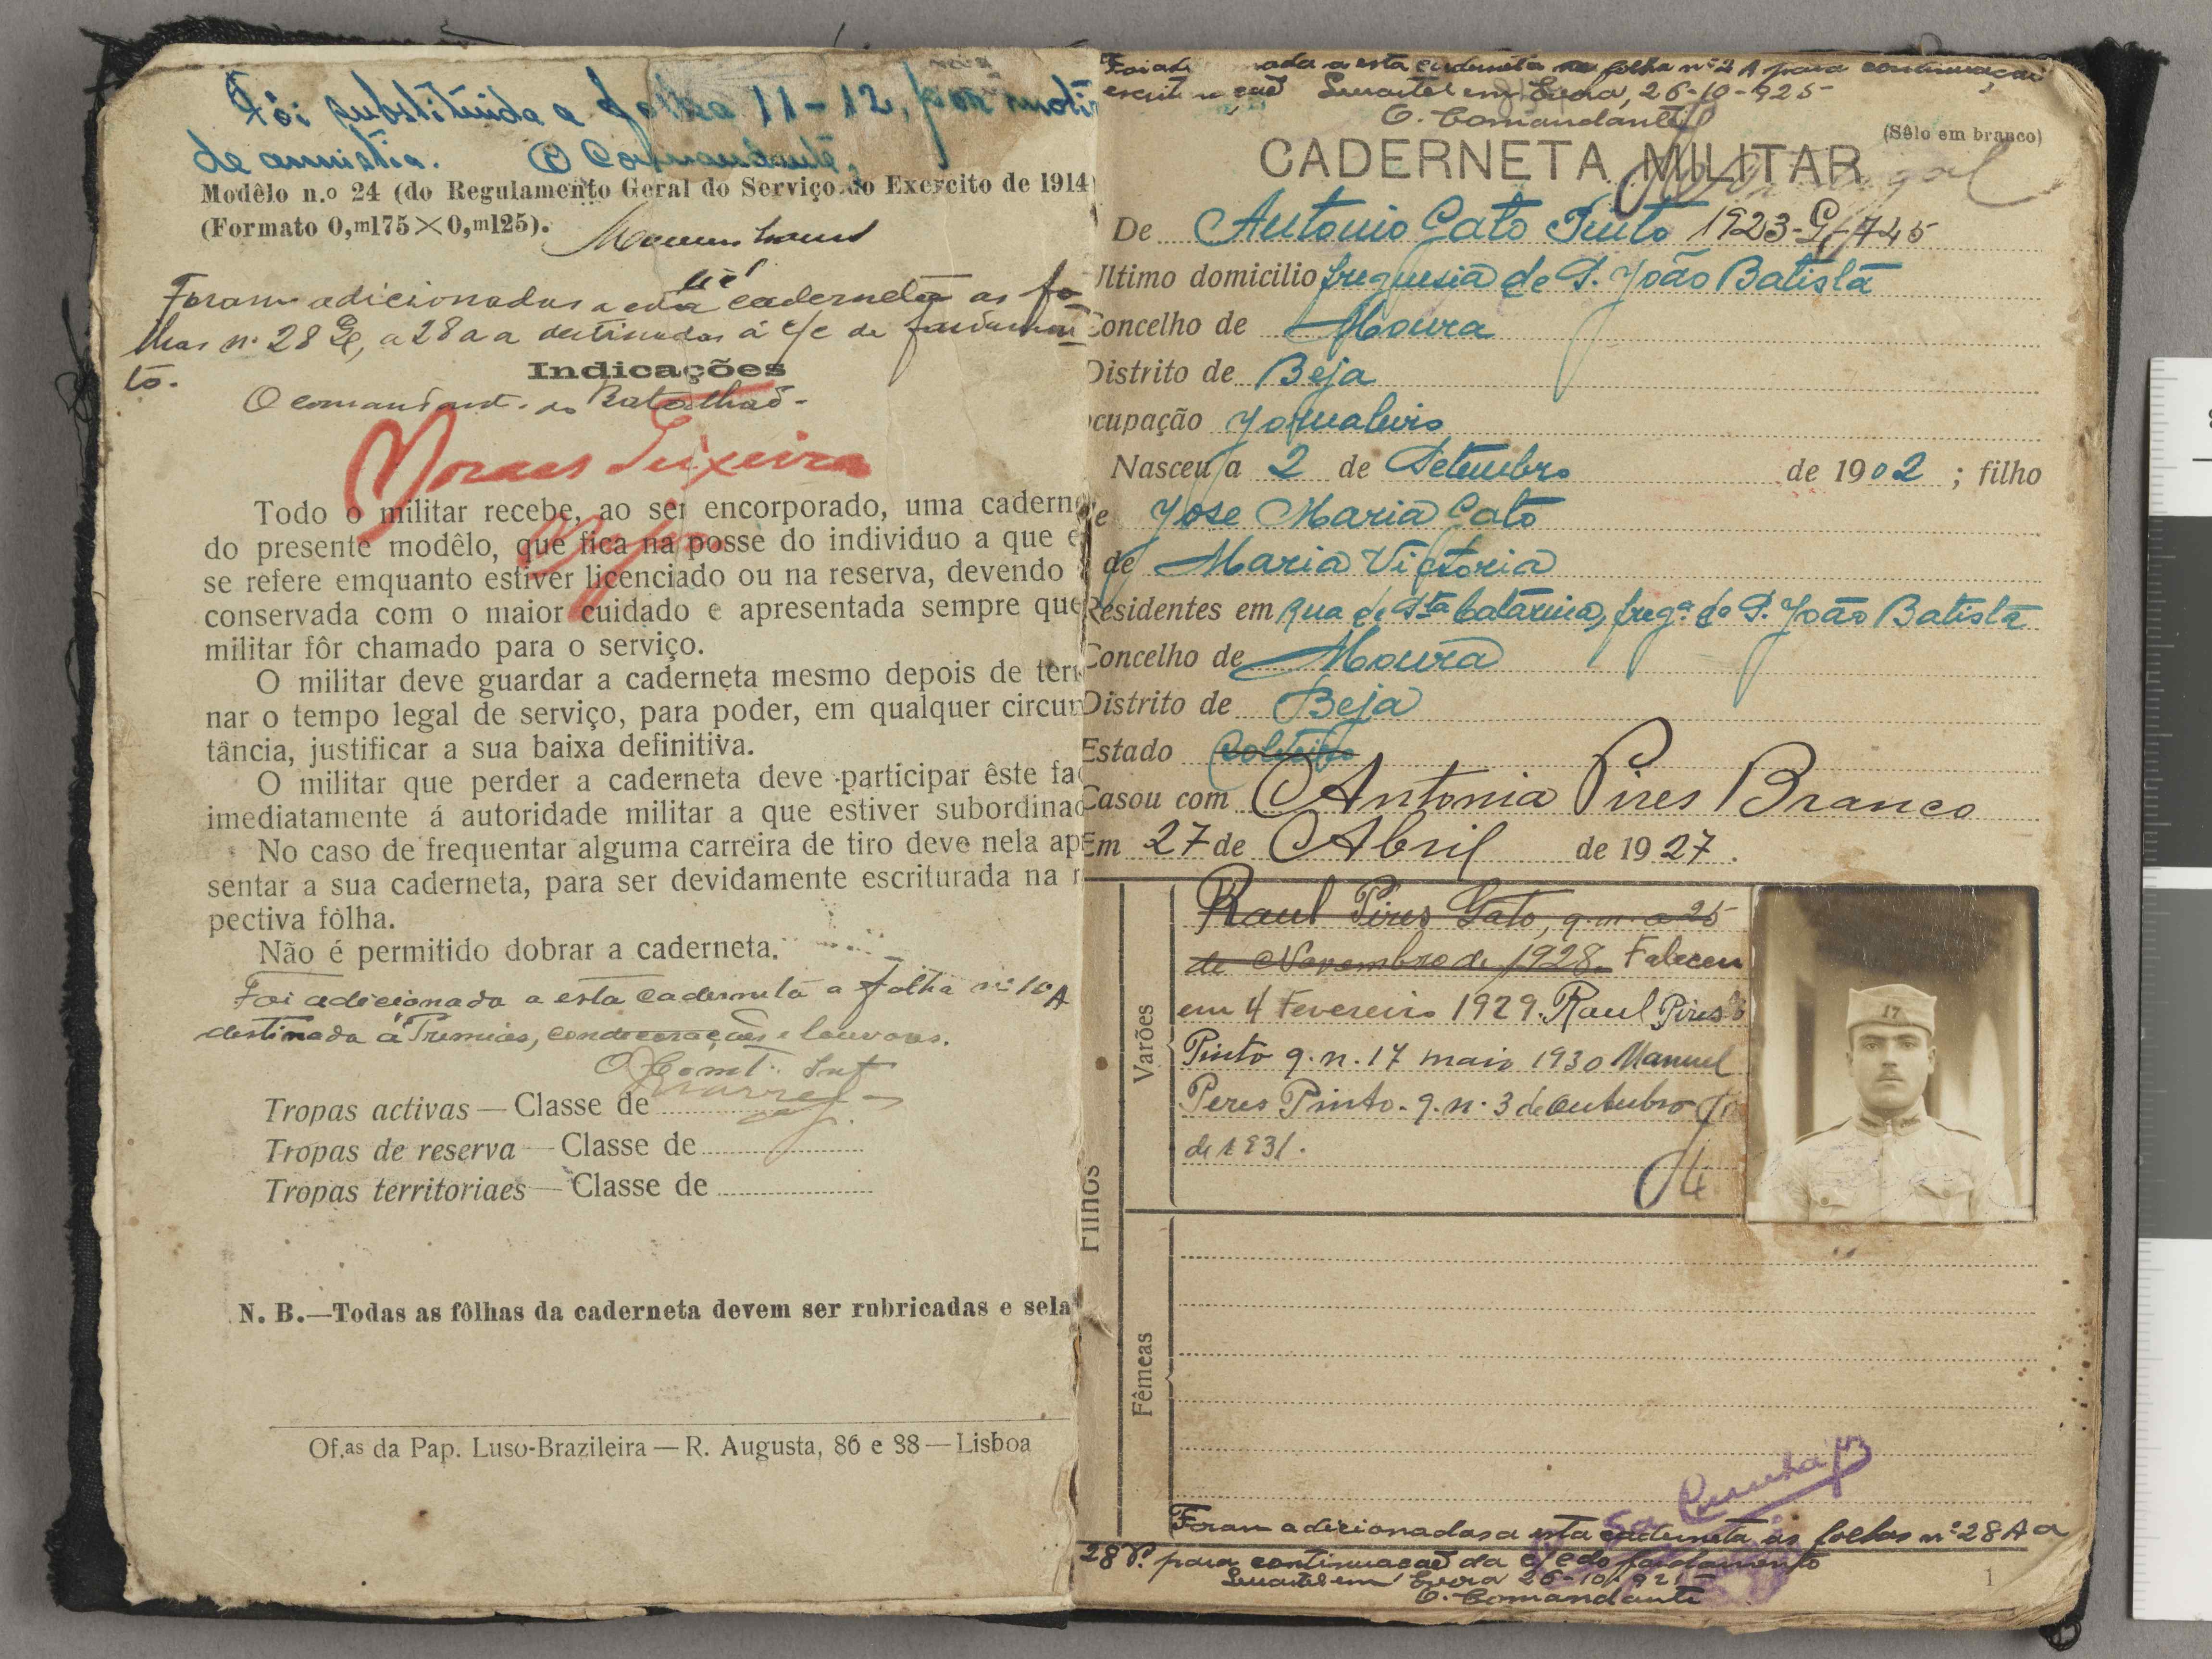 Fôi substituida a folha 11-12, por moti
de amnistia. O Comandante,
Modêlo n.o 24 (do Regulamento Geral do Serviço do Exercito de 1914)
(Formato 0,m175×0,m125).
Foram adicionadas a esta caderneta as fo
lhas nº 28 a 28 a a destinadas á c/c de fardamen
to.
Indicações
O comandante do Batalhão
Moraes Teixeira
Todo o militar recebe, ao ser encorporado, uma cadern
do presente modêlo, que fica na posse do individuo a que e
se refere emquanto estiver licenciado ou na reserva, devendo
conservada com o maior cuidado e apresentada sempre que
militar fôr chamado para o serviço.
O militar deve guardar a caderneta mesmo depois de term
nar o tempo legal de serviço, para poder, em qualquer circun
tância, justificar a sua baixa definitiva.
O militar que perder a caderneta deve participar êste fa
imediatamente á autoridade militar a que estiver subordinad
No caso de frequentar alguma carreira de tiro deve nela ap
sentar a sua caderneta, para ser devidamente escriturada na r
pectiva fôlha.
Não é permitido dobrar a caderneta.
Foi adicionada a esta caderneta a folha nº 10 A
destinada á Premios, condecorações e louvores.
O Comt.
Tropas activas — Classe de
Tropas de reserva — Classe de
Tropas territoriaes — Classe de
N. B.—Todas as fôlhas da caderneta devem ser rubricadas e sela
Of.as da Pap. Luso-Brazileira — R. Augusta, 86 e 88 — Lisboa
Foi ad nada a esta caderneta a folha nº 2 A para continuação
escrit ção Quartel em Evora, 26-10-925
O. Comandante
(Sêlo em branco)
CADERNETA MILITAR
De Antonio Gato Pinto 1923-G/745
Ultimo domicilio freguesia de S. João Batista
Concelho de Moura
Distrito de Beja
cupação Jornaleiro
Nasceu a 2 de Setembro de 1902 ; filho
e Jose Maria Gato
de Maria Victoria
Residentes em Rua de Sta Catarina, freg.a de S. João Batista
Concelho de Moura
Distrito de Beja
Estado Solteiro
Casou com Antonia Pires Branco
Em 27 de Abril de 1927.
Filhos
Varões
Raul Pires Gato, q. n. a 25
de Novembro de 1928. Faleceu
em 4 Fevereiro 1929. Raul Pires
Pinto q. n. 17 maio 1930 Manuel
Peres Pinto - q. n. 3 de Outubro
de 1931.
17
Fêmeas
Foram adicionadas a esta caderneta as folhas nº 28 A a
28 P. para continuação da c/c do fardamento
Quartel em Evora 26-10-925
O. Comandante
1